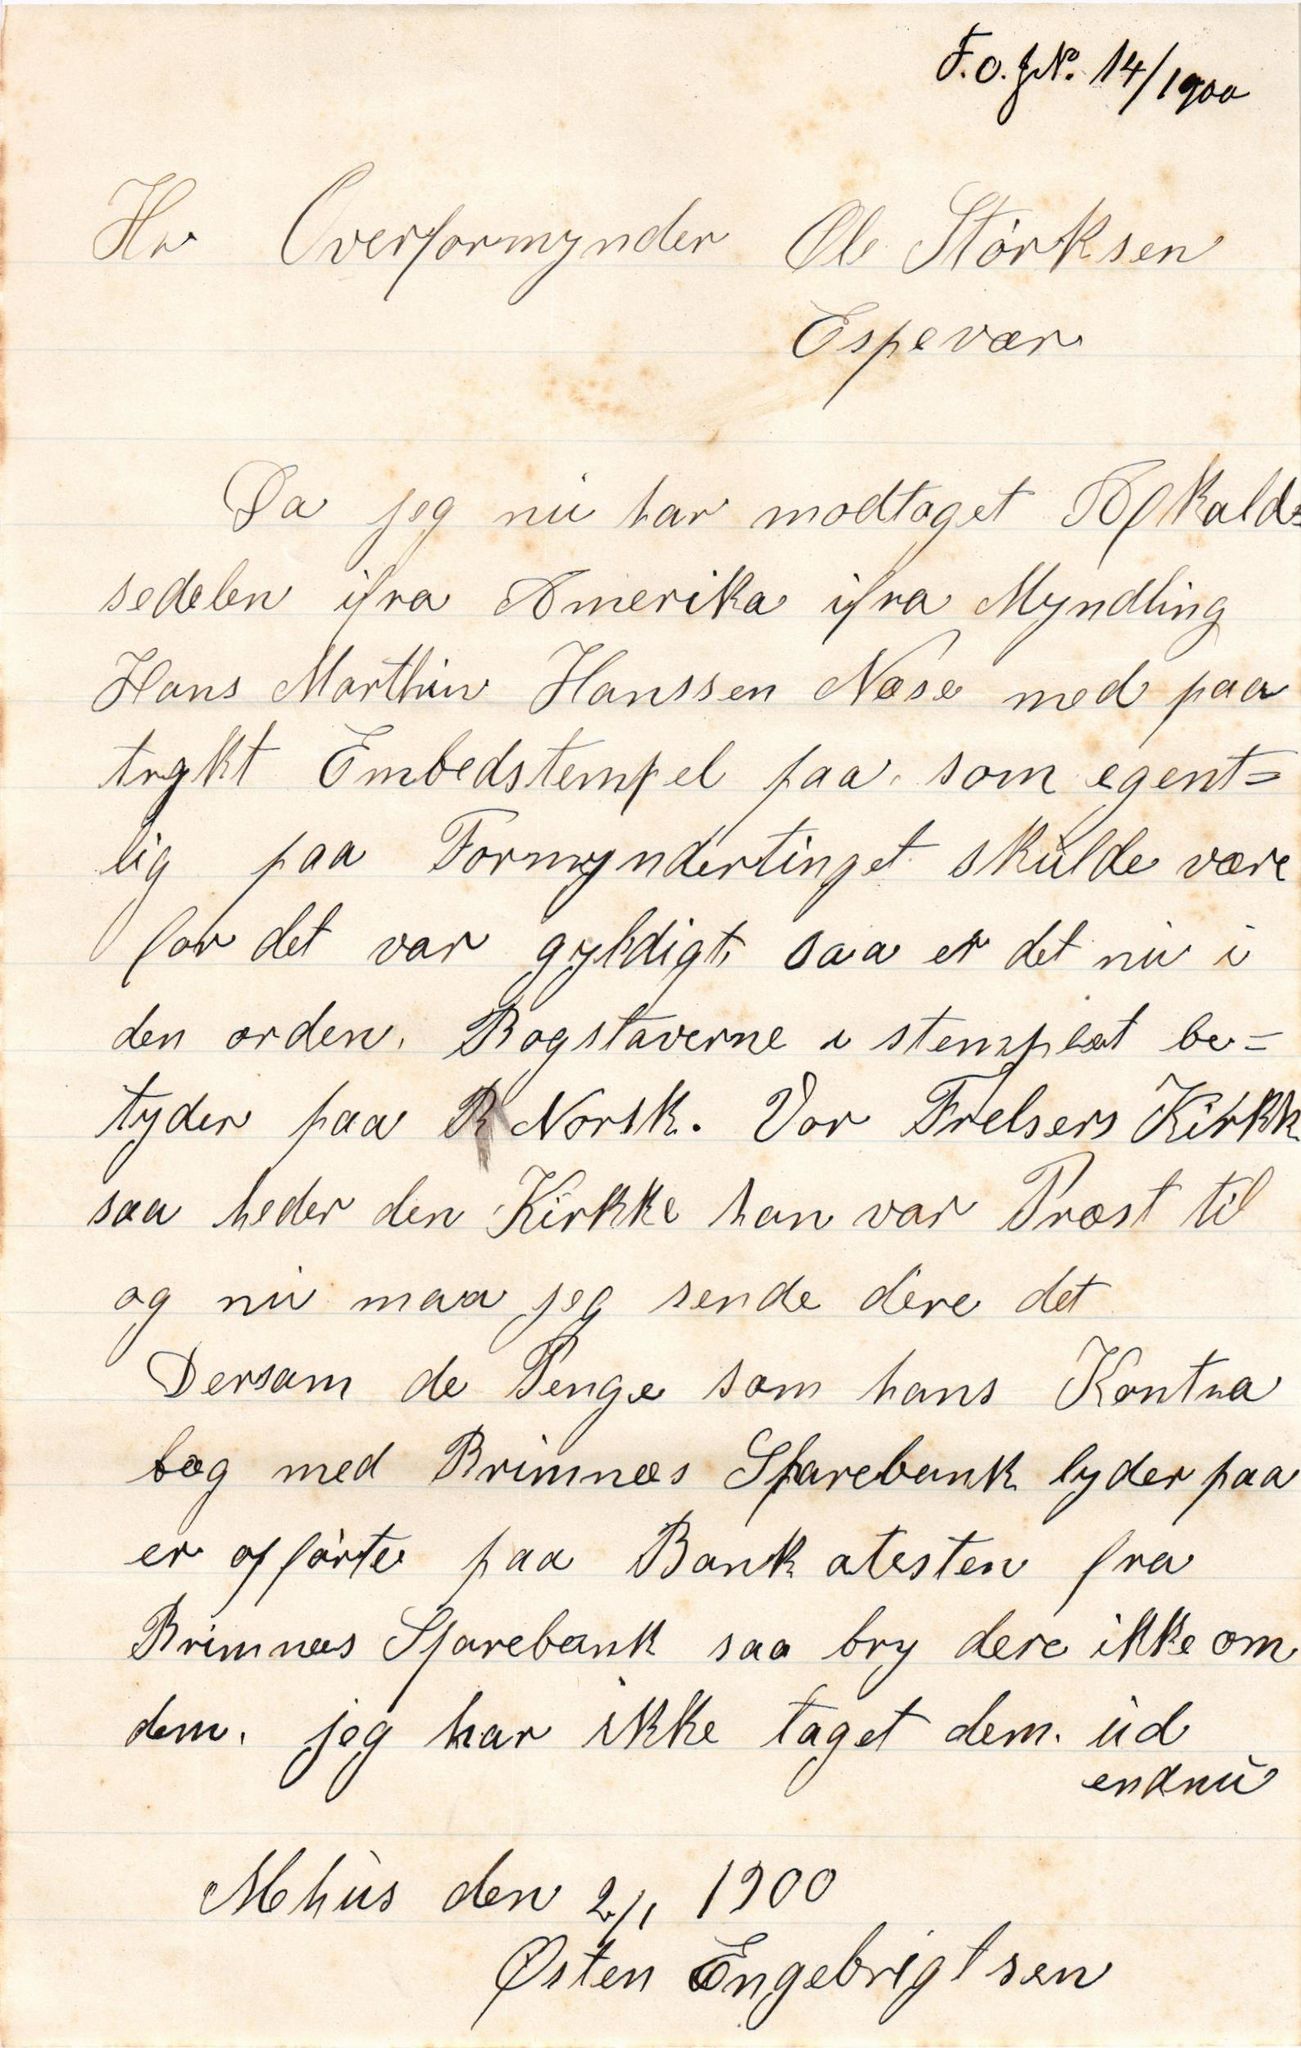 F.O.JN. 14/1900
Hr Overformynder Ole Störksen
Espevær
Da jeg nu har modtaget Afkalds=
sedelen ifra Amerika ifra Myndling
Hans Marthin Hanssen Næse med paa
trykt Embedstempel paa. som egent=
lig paa Formyndertinget skulde være
for det var gyldigt, saa er det nu i
den orden. Bogstaverne i stemplet be=
tyder paa Norsk. Vor Frelsers Kirkk
saa heder den Kirkke han var Præst til
og nu maa jeg sende dere det
Dersom de Penge som hans Kontra
bog med Brimnæs Sparebank lyder paa
er opförte paa Bank atesten fra
Brimnæs Sparebank saa bry dere ikke om
dem. jeg har ikke taget dem. ud
endnu
Mehus den 2/1 1900
Østen Engebrigtsen